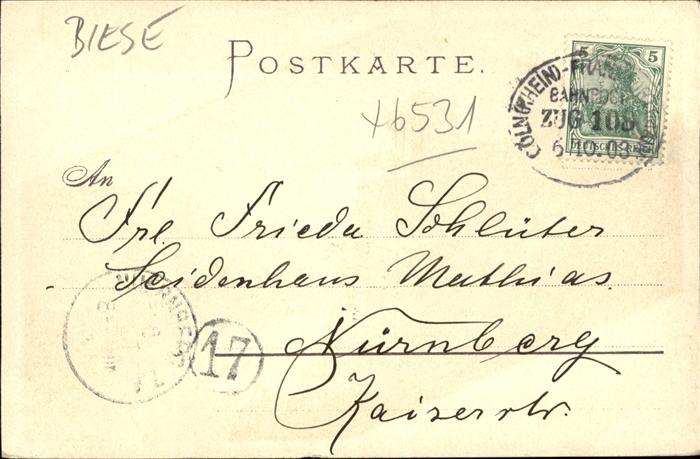 BIESE
POSTKARTE.
5 5
CÖLN (RHEIN)-FRAN
BAHNPOST
ZUG 10
6.10.03
DEUTSCHES REICH
+6531
An
Frl. Frieda Schlüter
Seidenhaus Mathias.
Nürnberg
Kaiserstr.
17